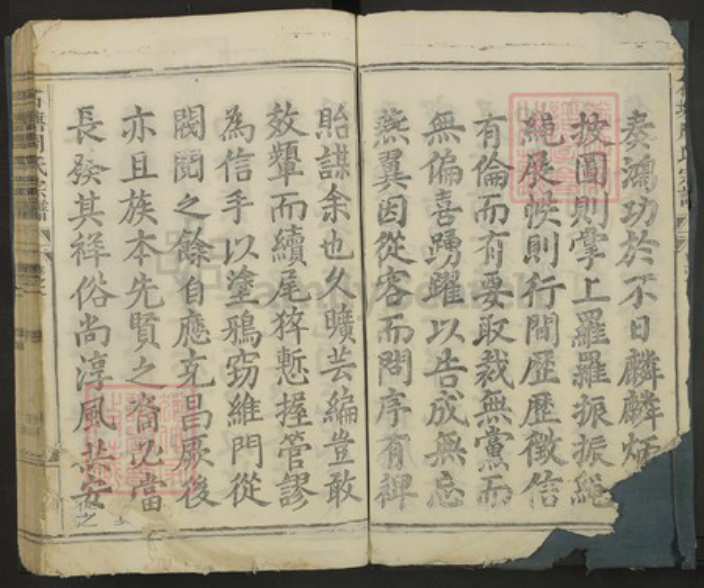 奏鴻功於不日麟麟炳
披圖則掌上羅羅振振繩
繩展帙則行間歷歷徵信
有倫而有要取裁無黨而
無偏喜踴躍以告成無忘
燕翼因從容而問序有裨
貽謀余也久曠芸編豈敢
效顰而續尾猝慙握管謬
為信手以塗鴉窃維門從
閥閱之餘自應克昌厥後
亦且族本先賢之裔必當
長發其祥俗尚淳風共安
周氏宗譜